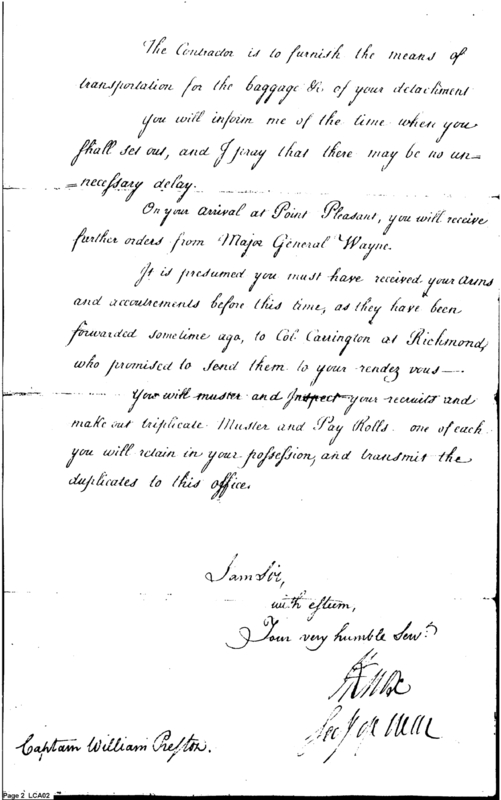 The Contractor is to furnish the means of
transportation for the baggage &c. of your detachment
You will inform me of the time when you
shall set out, and I pray that there may be no un=
=necessary delay.
On your arrival at Point Pleasant, you will receive
further orders from Major General Wayne.
It is presumed you must have received your arms
and accoutrements before this time, as they have been
forwarded sometime ago, to Col. Carrington at Richmond,
who promised to send them to your rendez vous—.
You will muster and Inspect your recruits and
make out triplicate Muster and Pay Rolls one of each
you will retain in your possession, and transmit the
duplicates to this office.
I am Sir,
with esteem,
Your very humble Servt.
H Knox
Secy of War
Captain William Preston.
Page 2 LCA02